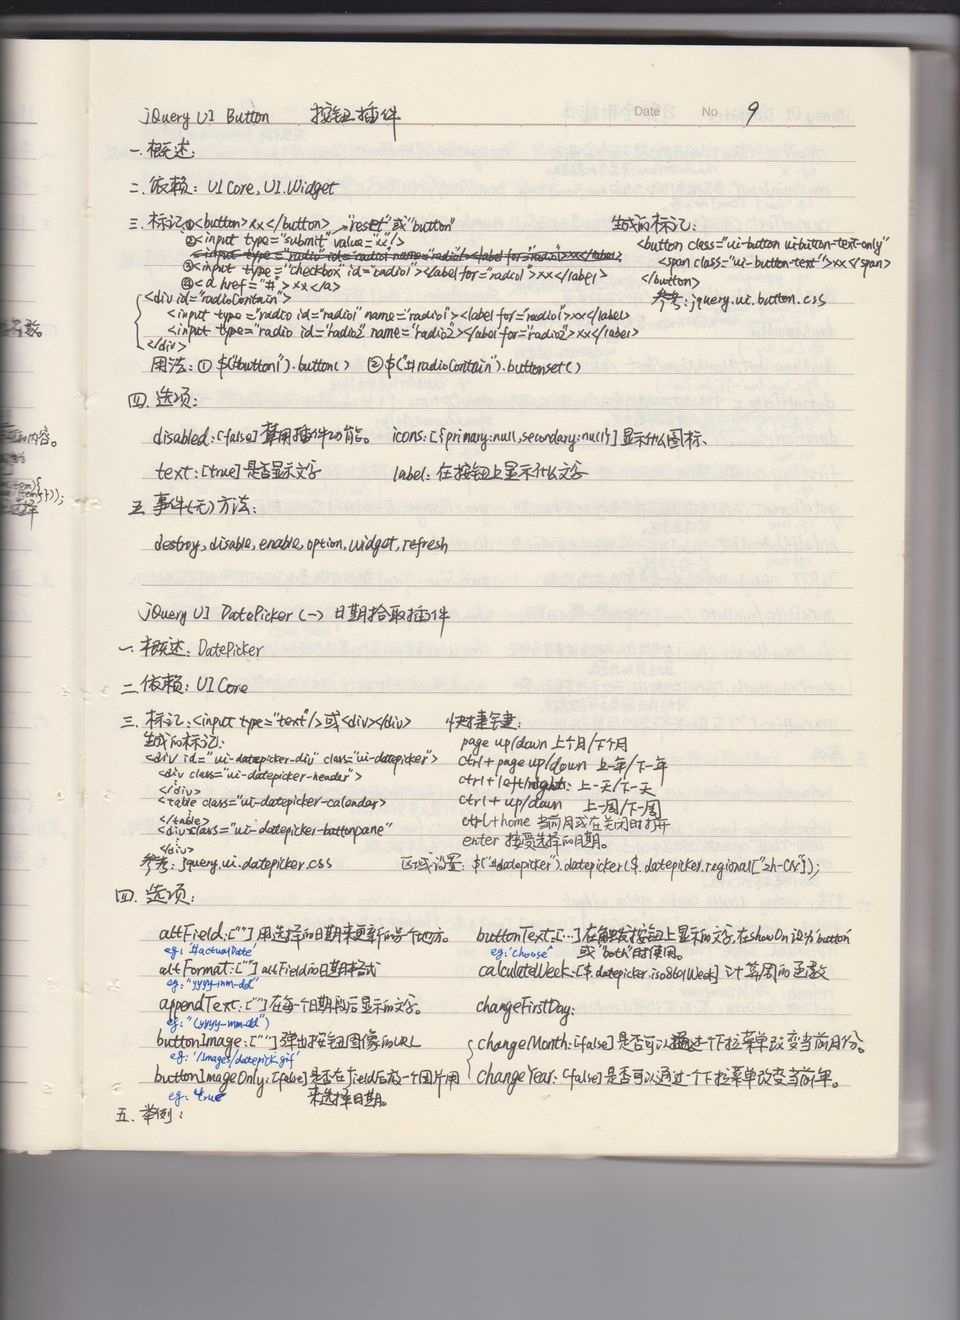 Date No. 9
jQuery UI Button 按钮插件
一.概述:
二.依赖: UI Core, UI.Widget
三.标记①<button>xx</button> "reset"或"button"
②<input type="submit" value="xx"/>
<input type="radio" id="radio1" name="radio1"></label for="radio1">xx</label>
③<input type="checkbox" id="radio1"></label for="radio1">xx</label>
④<a href="#">xx</a>
<div id="radioContain">
<input type="radio id="radio1" name="radio1"></label for="radio1>xx</label>
<input type="radio id="radio2" name="radio2"></label for="radio2">xx</label>
</div>
生成的标记:
<button class="ui-button uibutton-text-only"
<span class="ui-button-text">xx</span>
</button>
参考:jquery.ui.button.css
用法:① $("#button1").button() ②$("#radioContain").buttonset()
四.选项:
disabled:[false]禁用插件功能。 icons:[{primary:null,secondary:null}]显示什么图标、
text:[true]是否显示文字 label:在按钮上显示什么文字
五.事件(无)方法:
destroy, disable, enable, option, widget, refresh
jQuery UI DatePicker (一) 日期拾取插件
一.概述: DatePicker
二.依赖: UI Core
三.标记:<input type="text"/>或<div></div>
生成的标记:
<div id="ui-datepicker-div" class="ui-datepicker>
<div class="ui-datepicker-header">
</div>
<table class="ui-datepicker-calendar>
</table>
<div class="ui-datepicker-buttonpane"
</div>
参考:jquery.ui.datepicker.css
快捷键:
page up/down 上个月/下个月
ctrl+page up/down 上一年/下一年
ctrl+left/right: 上一天/下一天
ctrl+up/down 上一周/下一周
ctrl+home 当前月或在关闭时打开
enter 接受选择的日期。
区域设置: $("#datepicker").datepicker($.datepicker.regional["zh-CN"]);
四.选项:
altField:[""]用选择的日期来更新的另个地方。
eg:'#actualDate'
altFormat:[""]altField的日期格式
eg:"yyyy-mm-dd"
appendText:[""]在每个日期段后显示的文字。
eg:"(yyyy-mm-dd")
buttonImage:[""]弹出按钮图像的URL
eg:'/images/datepick.gif'
buttonImageOnly:[false]是否在field后放一个图片用
eg:true 来选择日期。
buttonText:[...]在触发按钮上显示的文字,在showOn设为'button'
eg:'choose" 或"both"时使用。
calculateWeek:[$.datepicker.iso8601Week] 计算周的函数
changeFirstDay:
changeMonth:[false]是否可以通过一个下拉菜单改变当前月份。
changeYear:[false]是否可以通过一个下拉菜单改变当前年。
五.举例:
内容。